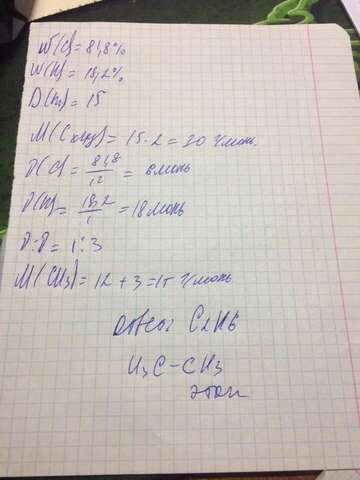 W(C)=81,8%
W(H)=18,2%
D(H₂)=15
M(CxHy)=15·2=30 г/моль.
ν(C)=81,8/12=6моль
ν(H)=18,2/1=18моль
ν:ν=1:3
M(CH3)=12+3=15 г/моль
ответ C2H6
H3C-CH3
этан